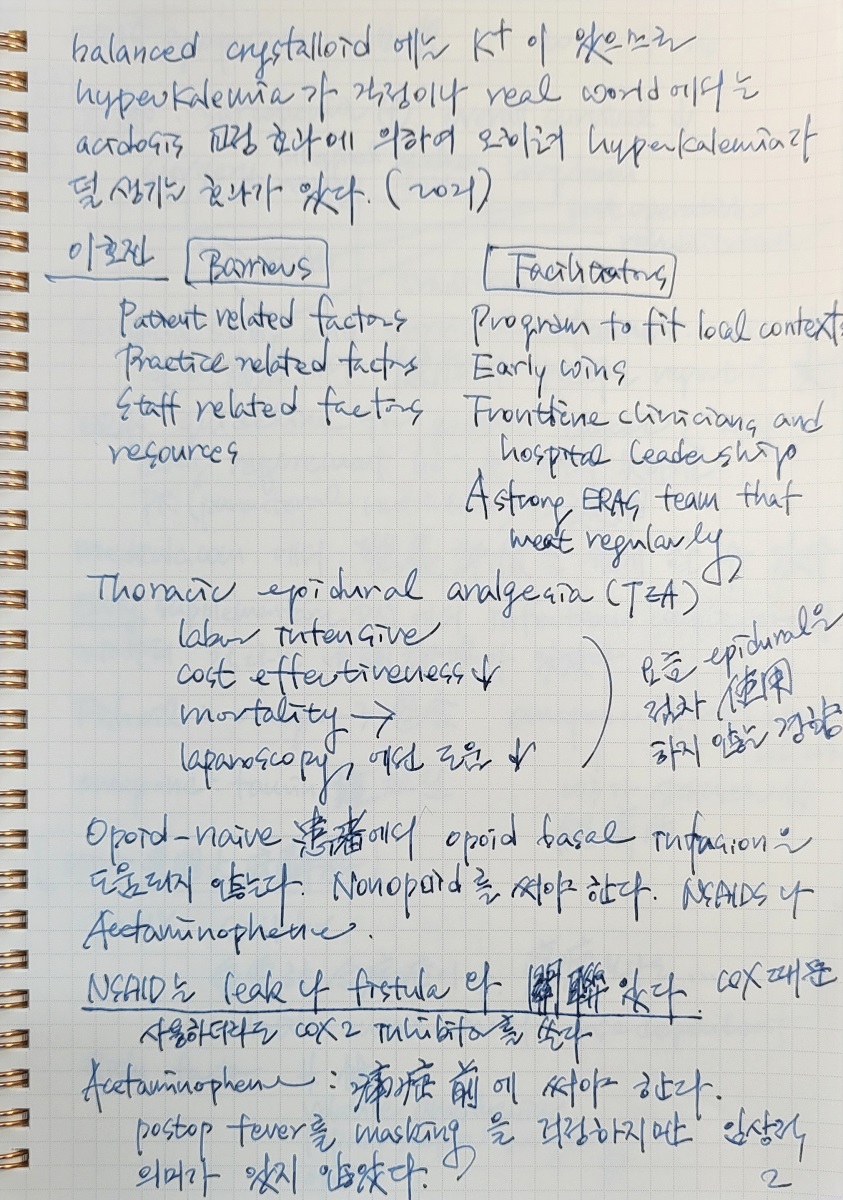 balanced crystalloid 에는 K+ 이 있으므로
hyperkalemia가 걱정이나 real world에서는
acidosis 교정 효과에 의하여 오히려 hyperkalemia가
덜 생기는 효과가 있다. (2021)
이호진 Barriers
Patient related factors
Practice related factors
Staff related factors
resources
Facilitators
Program to fit local contexts
Early wins
Frontline clinicians and
hospital leadership
A strong ERAS team that
meet regularly
Thoracic epidural analgesia (TEA)
labor intensive
cost effectiveness ↓
mortality →
laparoscopy 에선 도움 ↓
요즘 epidural은
점차 使用
하지 않는 경향
Opoid-naive 患者에서 opoid basal infusion은
도움되지 않는다. Nonopoid를 써야 한다. NSAIDS나
Acetaminophene.
NSAID는 leak 나 fistula 와 關聯있다. COX 때문
사용하더라도 COX2 inhibitor를 쓴다
Acetaminophene : 痛症 前에 써야 한다.
postop fever를 masking을 걱정하지만 임상적
의미가 있지 않았다.
2